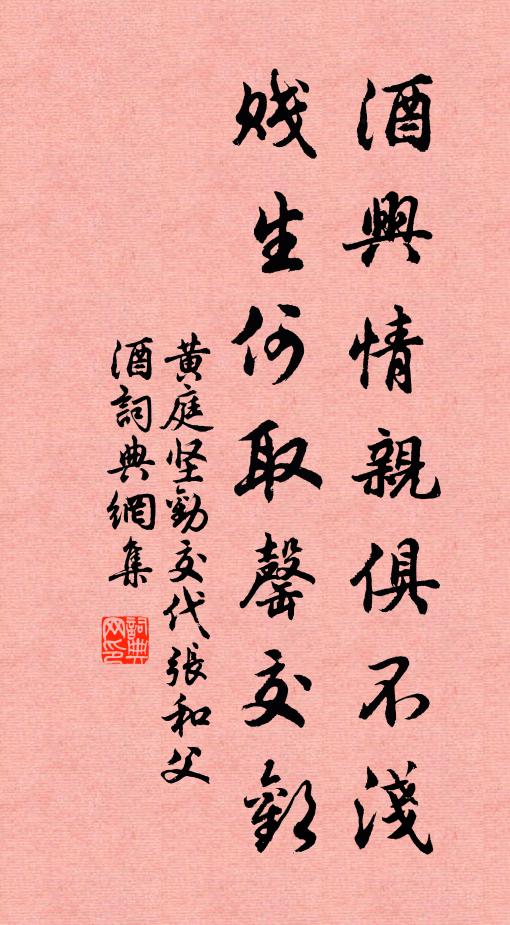 酒興情親俱不淺
賤生何取罄交歡
黄庭坚勸交代張和父
酒詞典網集
詞典网印